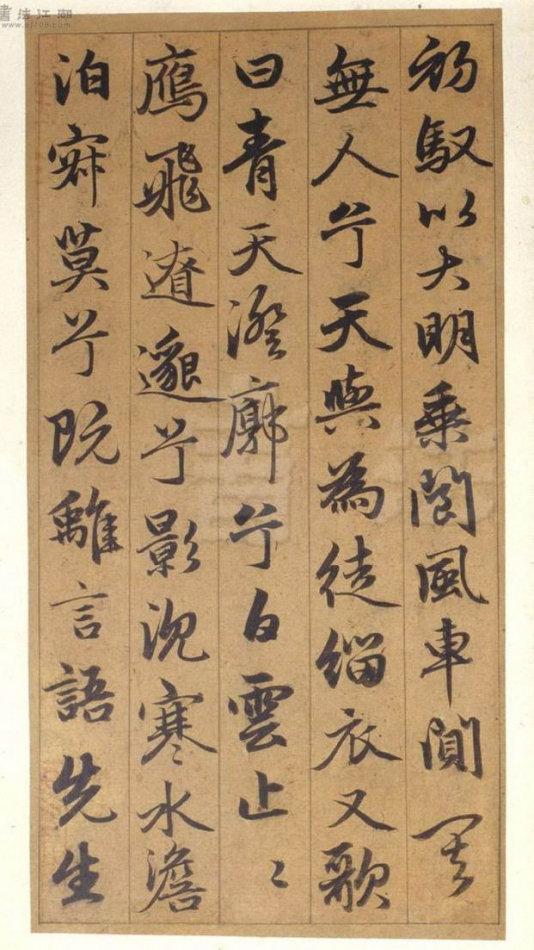 初馭以大明乘閬風車闃
無人兮天與為徒緇衣又歌
曰青天澄廓兮白雲止〻
鴈飛遼邈兮影沉寒水澹
泊寂莫兮既離言語先生
書法江湖